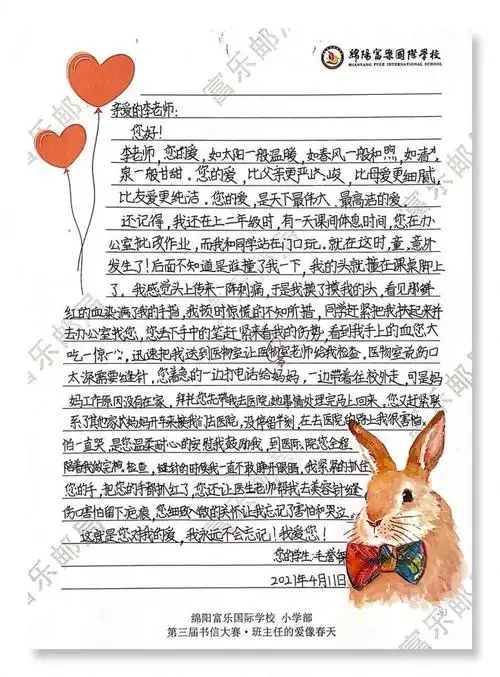 绵阳富乐国际学校
MIANYANG FULE INTERNATIONAL SCHOOL
亲爱的李老师:
您好!
李老师,您的爱,如太阳一般温暖,如春风一般和煦,如清
泉一般甘甜。您的爱,比父亲更严峻,比母爱更细腻,
比友爱更纯洁。您的爱,是天下最伟大、最高洁的爱。
还记得,我还在上二年级时,有一天课间休息时间,您在办
公室批改作业,而我和同学站在门口玩。就在这时,意外
发生了!后面不知道是谁撞了我一下,我的头就撞在课桌脚上
了。我感觉头上传来一阵刺痛,于是我摸了摸我的头,看见那鲜
红的血染满了我的手指,我顿时惊慌的不知所措,同学赶紧把我扶起来并
去办公室找您,您丢下手中的笔赶紧来看我的伤势,看到我手上的血您大
吃一惊,迅速把我送到医物室让医物室老师给我检查,医物室说伤口
太深需要缝针,您着急的一边打电话给妈妈,一边带着往校外走,可是妈
妈工作原因没有在家、拜托您先带我去医院,她事情处理完马上回来。您又赶紧联
系了其他家长妈妈开车来接我们去医院,没停留半刻,在去医院的路上我很害怕。
怕一直哭,是您温柔耐心的安慰我鼓励我,到医院,您全程
陪着我做完检查,缝针的时候我一直不敢睁开眼睛,我紧紧的抓住
您的手,把您的手都抓红了,您还让医生老师帮我去美容针缝
伤口害怕留下疤痕,您细致入微的关怀让我忘记了害怕和哭泣。
这就是您对我的爱,我永远不会忘记!我爱您!
您的学生:毛誉
2021年4月11日
绵阳富乐国际学校 小学部
第三届书信大赛·班主任的爱像春天
富乐邮局
富乐邮局
富乐邮局
富乐邮局